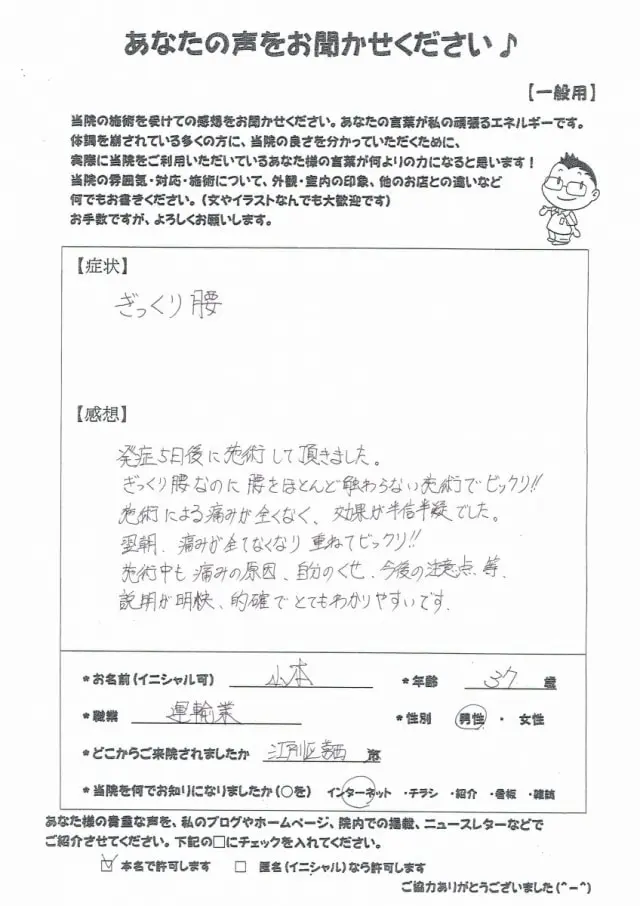 あなたの声をお聞かせください♪
【一般用】
当院の施術を受けての感想をお聞かせください。あなたの言葉が私の頑張るエネルギーです。
体調を崩されている多くの方に、当院の良さを分かっていただくために、
実際に当院をご利用いただいているあなた様の言葉が何よりの力になると思います！
当院の雰囲気・対応・施術について、外観・室内の印象、他のお店との違いなど
何でもお書きください。（文やイラストなんでも大歓迎です）
お手数ですが、よろしくお願いします。
【症状】
ぎっくり腰
【感想】
発症5日後に施術して頂きました。
ぎっくり腰なのに腰をほとんど触わらない施術でビックリ!!
施術による痛みが全くなく、効果が半信半疑でした。
翌朝、痛みが全てなくなり重ねてビックリ!!
施術中も痛みの原因、自分のくせ、今後の注意点、等、
説明が明快、的確でとてもわかりやすいです。
*お名前（イニシャル可） 小本 *年齢 37 歳
*職業 運輸業 *性別 男性 ・ 女性
*どこからご来院されましたか 江戸川区葛西
*当院を何でお知りになりましたか（○を） インターネット ・チラシ ・紹介 ・看板 ・雑誌
あなた様の貴重な声を、私のブログやホームページ、院内での掲載、ニュースレターなどで
ご紹介させてください。下記の□にチェックを入れてください。
☑ 本名で許可します □ 匿名（イニシャル）なら許可します
ご協力ありがとうございました(^-^)